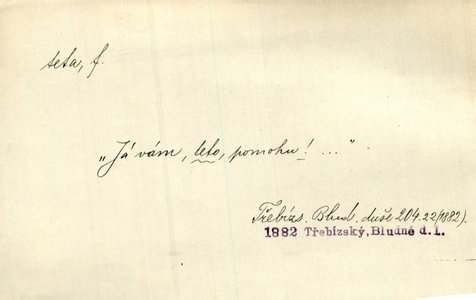 teta, f.
„Já vám, teto, pomohu! ..."
Třebízs. Blud. duše 204.22 (1882).
1882 Třebízský, Bludné d. I.